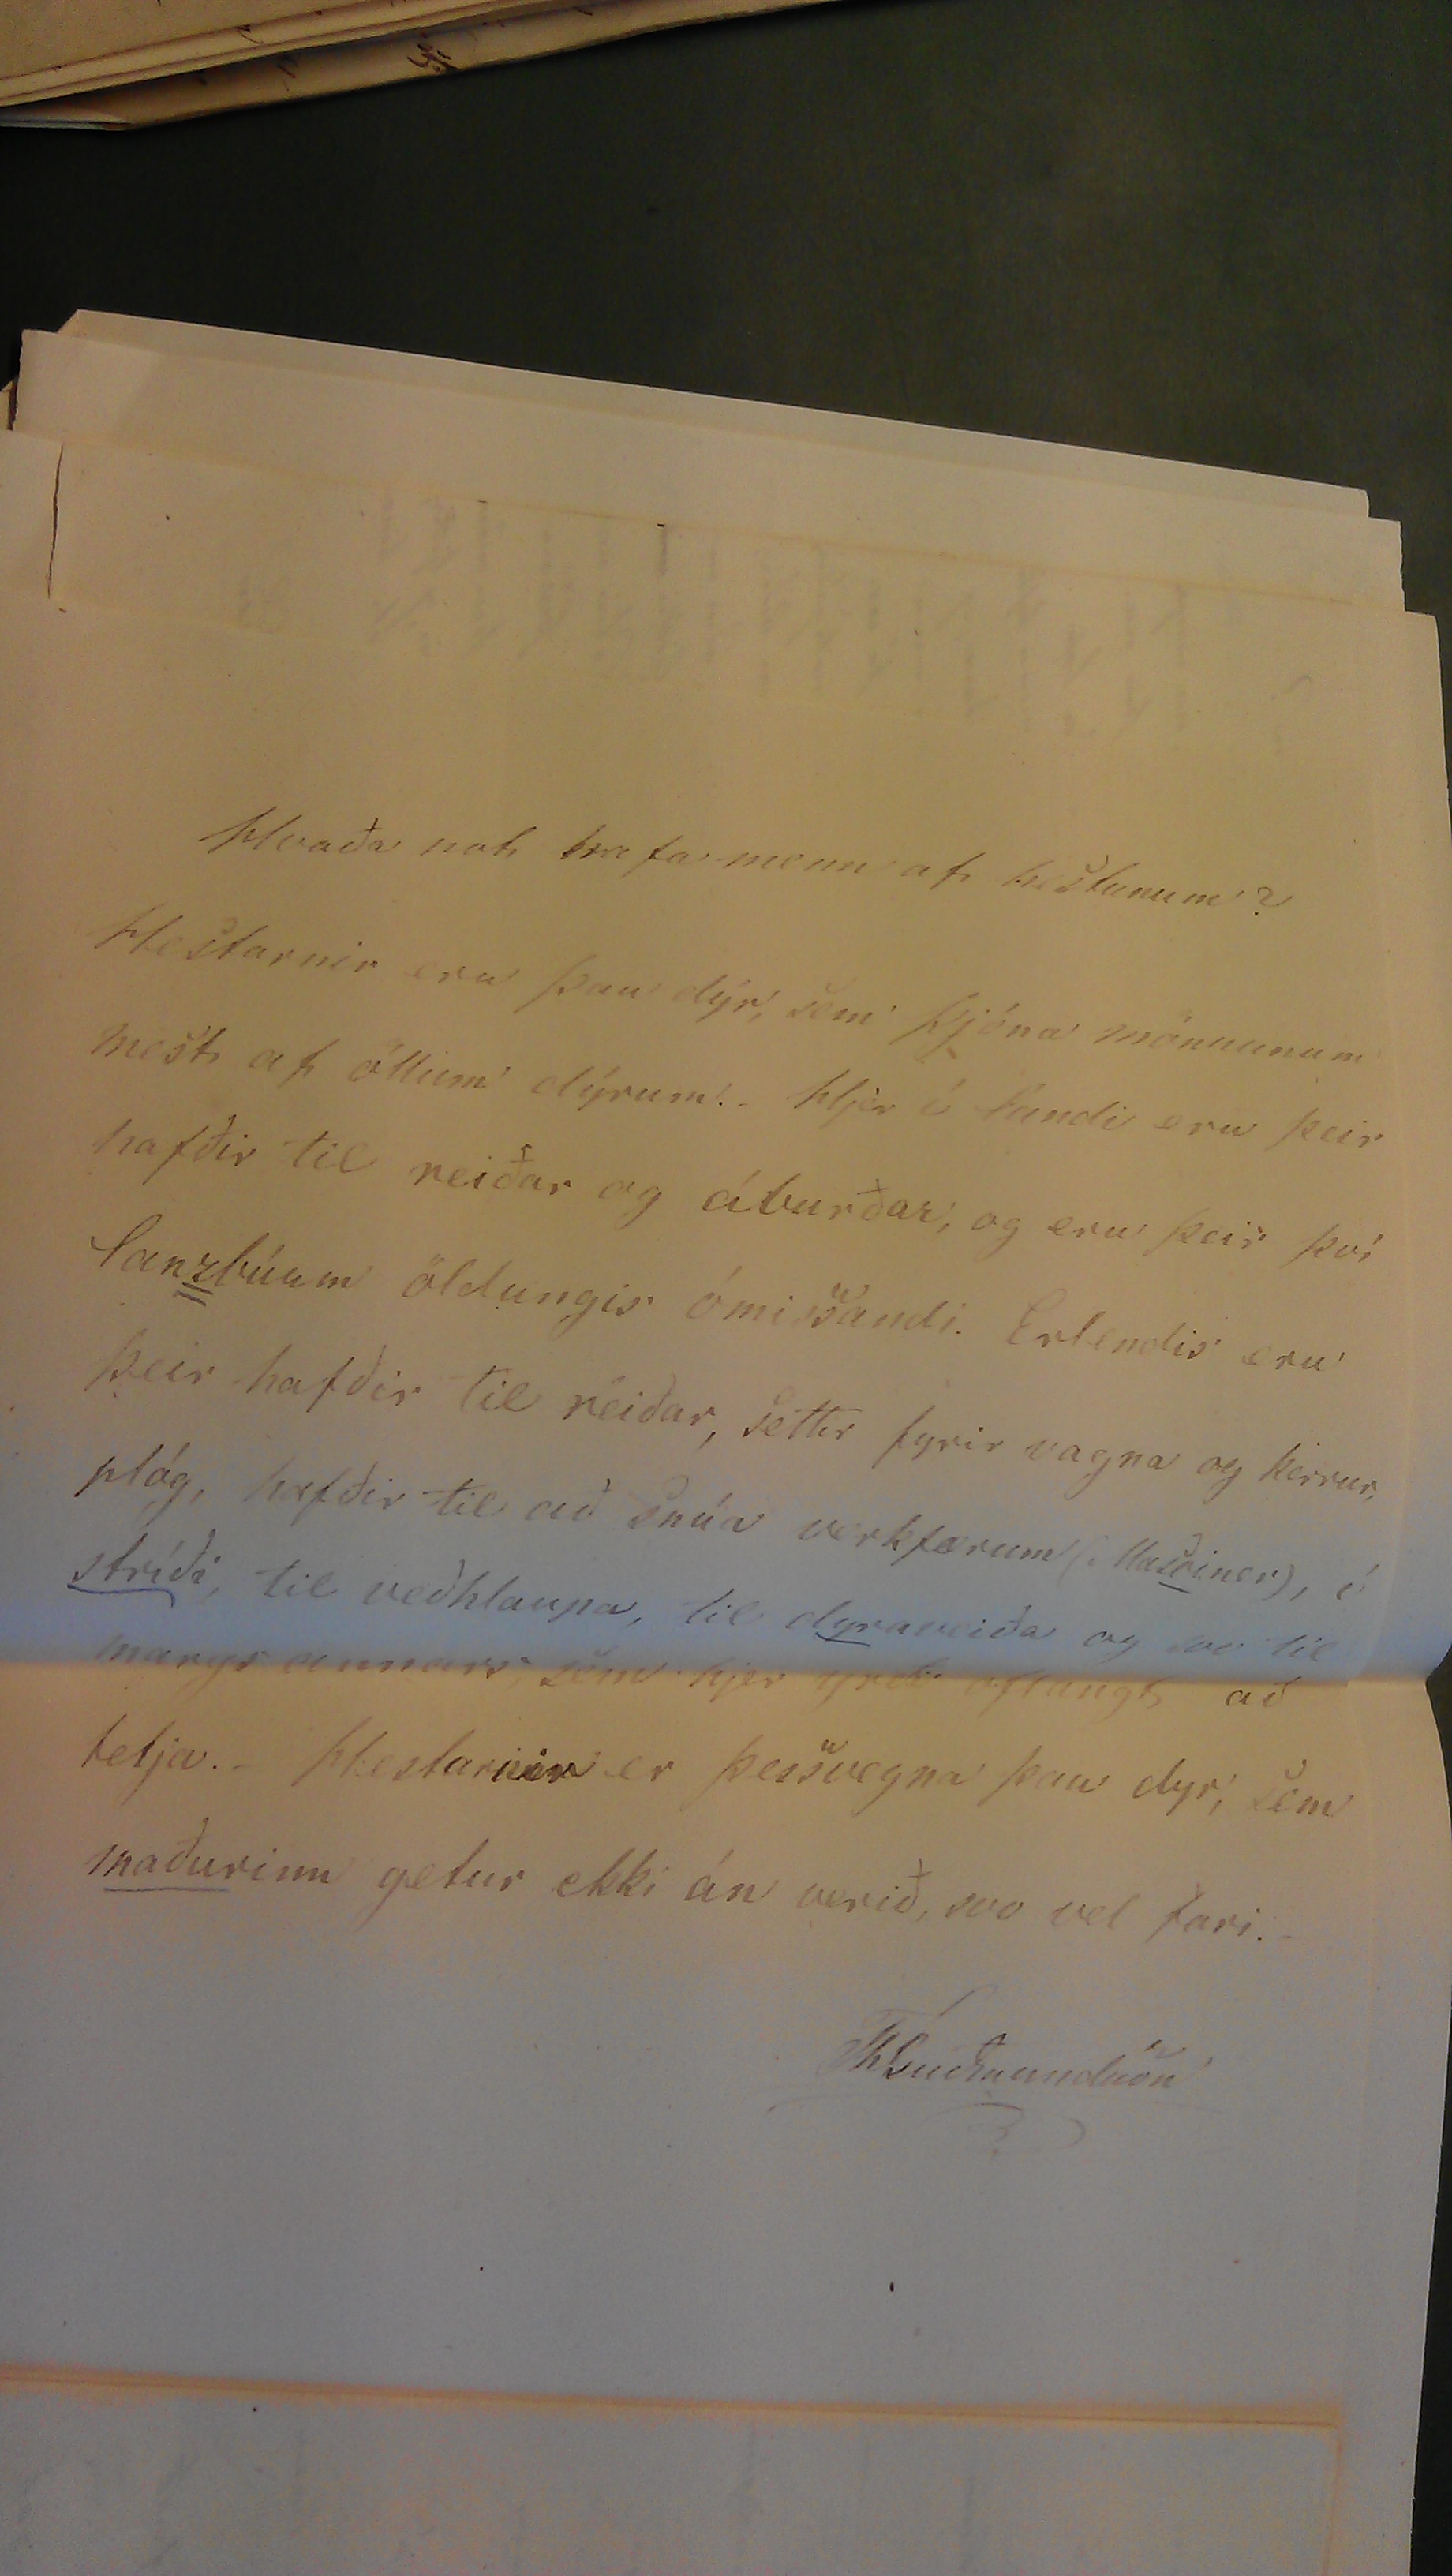 Hvaða not hafa menn af hestunum?
Hestarnir eru þau dýr, sem þjóna mönnunum
mest af öllum dýrum. - Hjer á landi eru þeir
hafðir til reiðar og áburðar, og eru þeir því
lanzbúum öldungis ómissandi. Erlendis eru
þeir hafðir til reiðar, settir fyrir vagna og kerrur,
plóg, hafðir til að snúa verkfærum (: Masciner), í
stríði, til veðhlaupa, til dyraveiða og svo til
margs annars, sem hjer yrði oflangt að
telja. - Hestarnir er þessvegna þau dyr, sem
maðurinn getur ekki án verið, svo vel fari. -
ThGuðmundsson